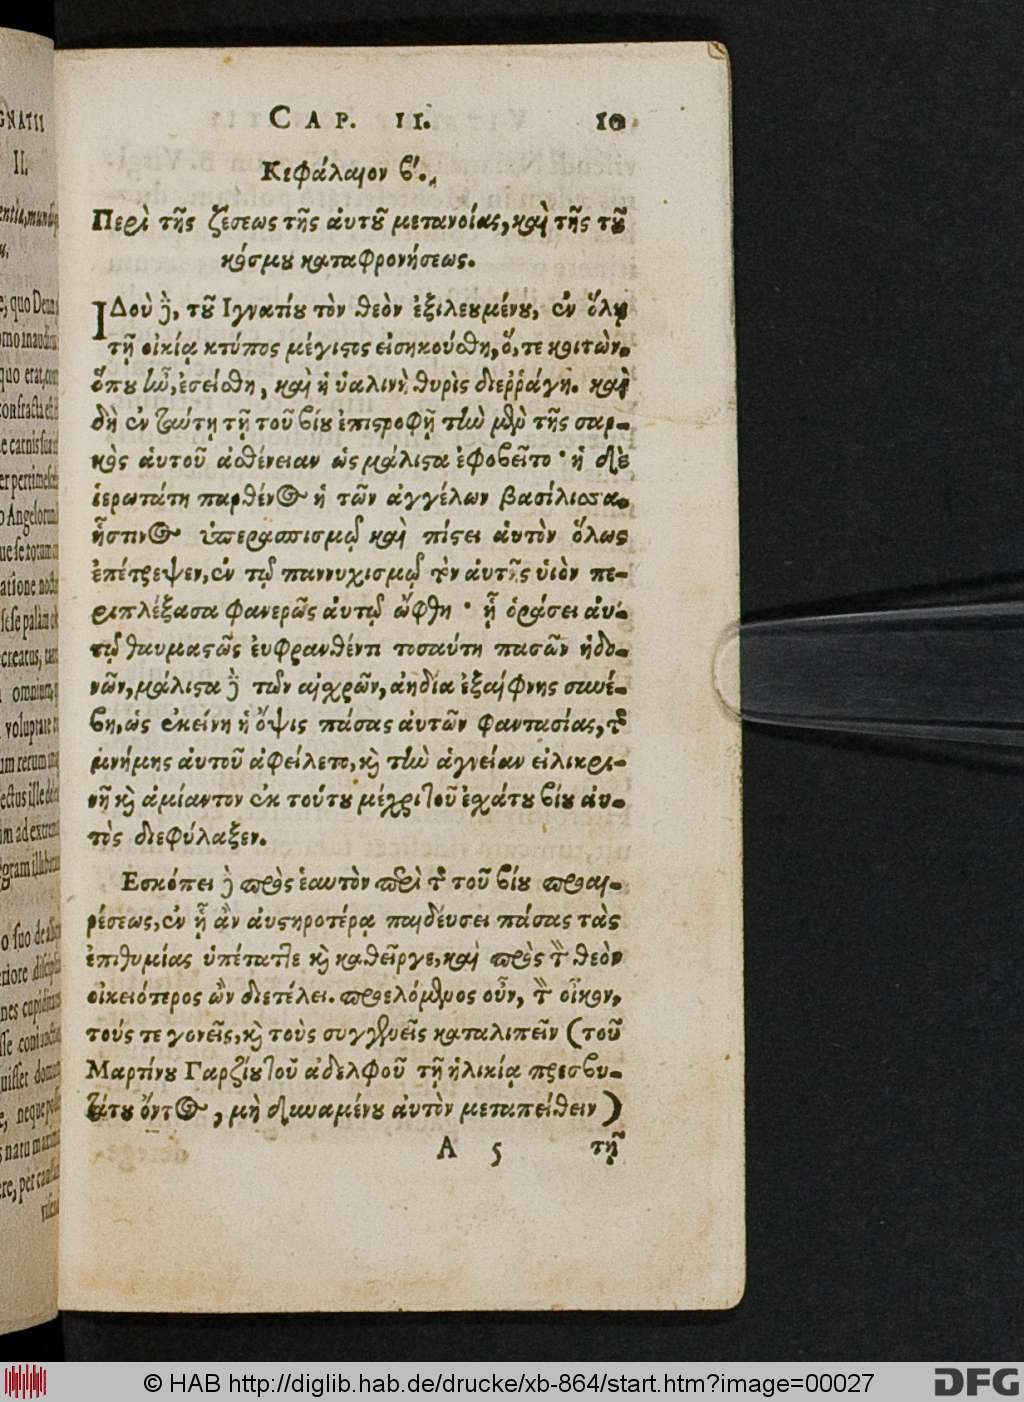 GNATII
II.
CAP. II. 10
Κεφάλαιον β'.
Περὶ τῆς ζέσεως τῆς ἀυτοῦ μετανοίας, καὶ τῆς τοῦ
κόσμου καταφρονήσεως.
ΙΔοὺ δὲ, τοῦ Ιγνατίου τὸν θεὸν ἐξιλευμένου, ἐν ὅλῃ
τῇ οἰκίᾳ κτύπος μέγιστος εἰσηκούσθη, ὅ, τε κοιτὼν,
ὅπου ἦν, ἐσείσθη, καὶ ἡ ὑαλινὴ θυρὶς διεῤῥάγη. καὶ
δὴ ἐν ταύτῃ τῇ τοῦ βίου ἐπιστροφῇ τὴν μὲν τῆς σαρ-
κὸς ἀυτοῦ ἀσθένειαν ὡς μάλιστα ἐφοβεῖτο· ἡ δὲ
ἱερωτάτη παρθένος ἡ τῶν ἀγγέλων βασίλισσα,
ἧστινος ὑπερασπισμῷ καὶ πίστει ἀυτὸν ὅλως
ἐπέτρεψεν, ἐν τῷ παννυχισμῷ τὸν ἀυτῆς ὑιὸν πε-
ριπλέξασα φανερῶς ἀυτῷ ὤφθη· ᾗ ὁράσει ἀυ-
τῷ θαυμαστῶς ἐυφρανθέντι τοσαύτη πασῶν ἡδο-
νῶν, μάλιστα δὲ τῶν αἰσχρῶν, ἀηδία ἐξαίφνης συνέ-
βη, ὡς ἐκείνη ἡ ὄψις πάσας ἀυτῶν φαντασίας, τῆς
μνήμης ἀυτοῦ ἀφείλετο, καὶ τὴν ἁγνείαν εἰλικρι-
νῆ καὶ ἀμίαντον ἐκ τούτου μέχρι τοῦ ἐσχάτου βίου ἀυ-
τὸς διεφύλαξεν.
Εσκόπει δὲ πρὸς ἑαυτὸν περὶ τῆς τοῦ βίου προαι-
ρέσεως, ἐν ᾗ ἂν ἀυστηροτέρᾳ παιδέυσει πάσας τὰς
ἐπιθυμίας ὑπέταττε καὶ καθεῖργε, καὶ πρὸς τὸν θεὸν
οἰκειότερος ὢν διετέλει. προελόμενος οὖν, τὸν οἶκον,
τούς τε γονεῖς, καὶ τοὺς συγγενεῖς καταλιπεῖν (τοῦ
Μαρτίνου Γαρζίου τοῦ ἀδελφοῦ τῇ ἡλικίᾳ πρεσβυ-
τάτου ὄντος, μὴ δυναμένου ἀυτὸν μεταπείθειν)
A 5 τῇ
© HAB http://diglib.hab.de/drucke/xb-864/start.htm?image=00027
DFG